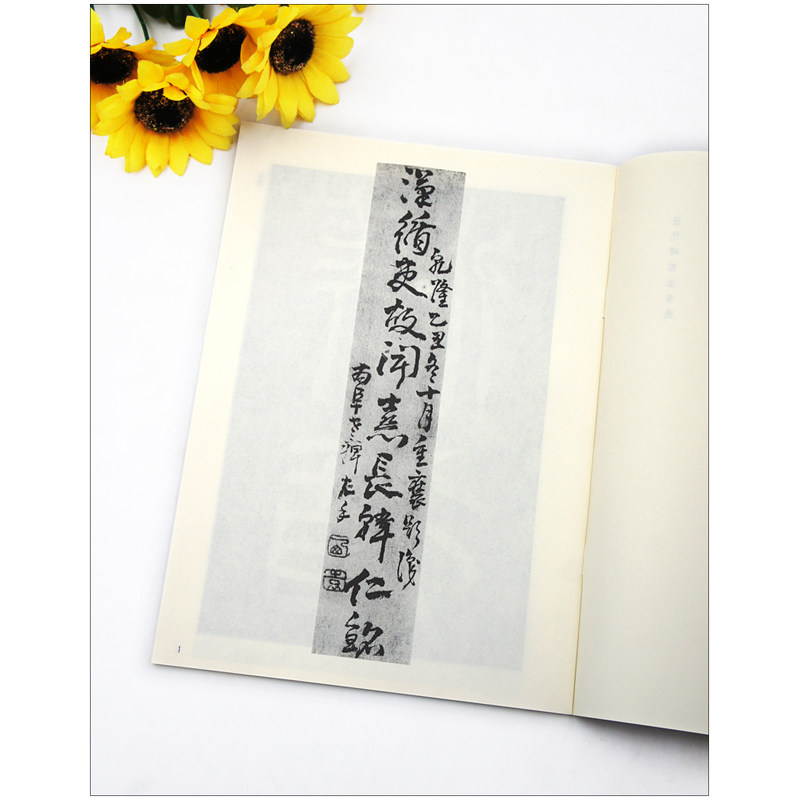 乾隆乙丑冬十月重裝題
漢循吏故聞憙長韓仁銘
南阜老痺左手
1